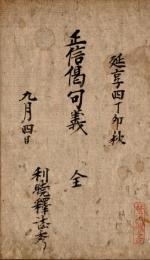 延享四丁卯秋
正信偈句義 全
九月四日
利暁釋法秀